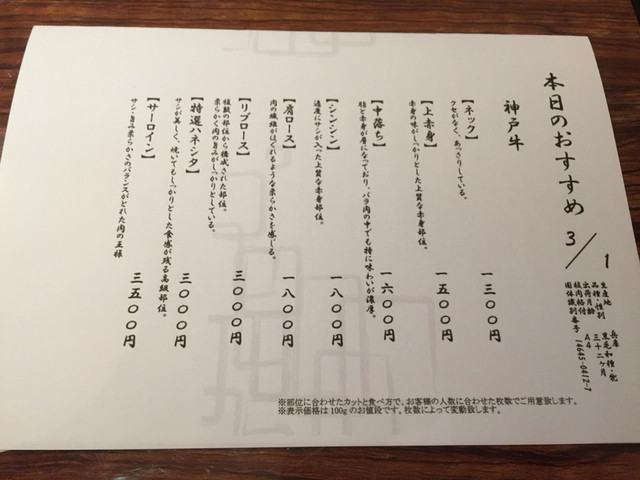 本日のおすすめ 3/1
生産地 兵庫
品種・性別 黒毛和種・
出荷月齢 三十二ヶ月
枝肉格付 A4
個体識別番号 14645-0412-7
神戸牛
【ネック】
クセがなく、あっさりしている。
一三〇〇円
【上赤身】
赤身の味がしっかりとした上質な赤身部位。
一五〇〇円
【中落ち】
脂と赤身が層になっており、バラ肉の中でも特に味わいが濃厚。
一六〇〇円
【シンシン】
適度にサシが入った上質な赤身部位。
一八〇〇円
【肩ロース】
肉の繊維がほぐれるような柔らかさを感じる。
一八〇〇円
【リブロース】
複数の部位から構成された部位。
柔らかく肉の旨みがしっかりとしている。
三〇〇〇円
【特選ハネシタ】
サシが美しく、焼いてもしっかりとした食感が残る高級部位。
三〇〇〇円
【サーロイン】
サシ・旨み柔らかさのバランスがとれた肉の王様
三五〇〇円
※部位に合わせたカットと食べ方で、お客様の人数に合わせた枚数でご用意致します。
※表示価格は100gのお値段です。枚数によって変動致します。